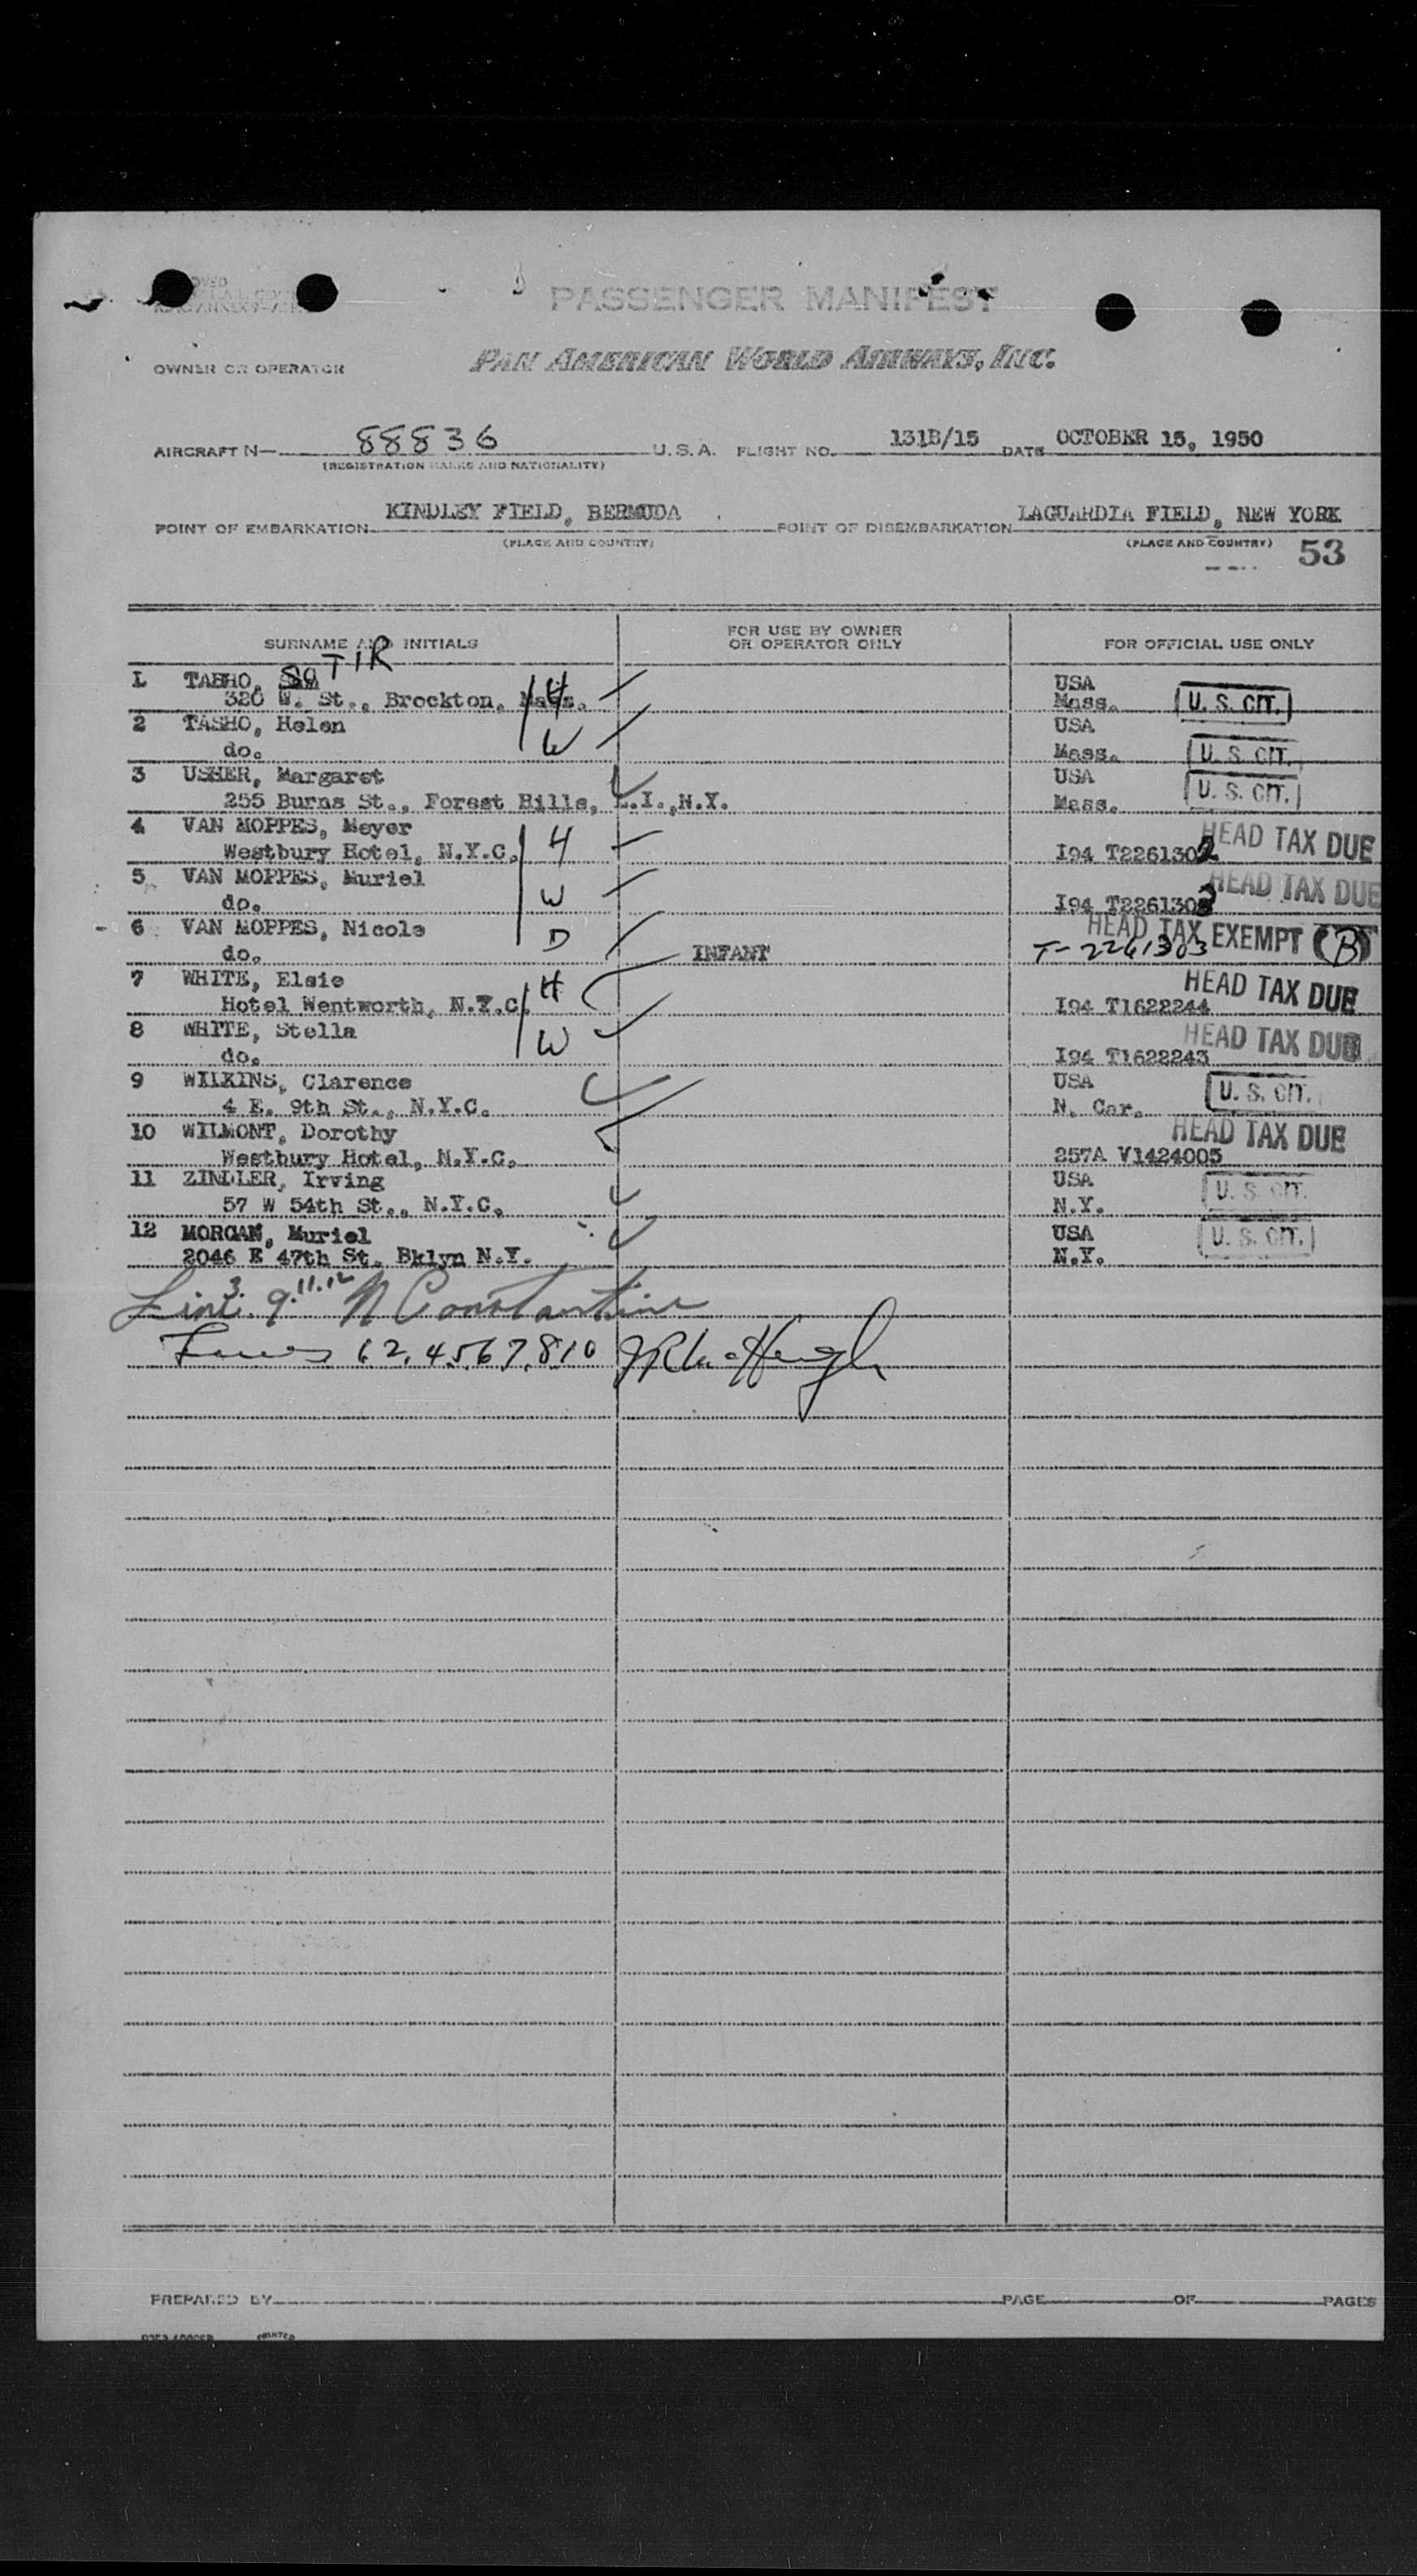 PASSENGER MANIFEST
OWNER OR OPERATOR PAN AMERICAN WORLD AIRWAYS, INC.
AIRCRAFT N— 88836 U.S.A. FLIGHT NO. 131B/15 DATE OCTOBER 15, 1950
(REGISTRATION MARKS AND NATIONALITY)
POINT OF EMBARKATION KINDLEY FIELD, BERMUDA POINT OF DISEMBARKATION LAGUARDIA FIELD, NEW YORK
(PLACE AND COUNTRY) (PLACE AND COUNTRY) 53
SURNAME AND INITIALS FOR USE BY OWNER OR OPERATOR ONLY FOR OFFICIAL USE ONLY
SOTIR
1 TASHO, USA
320 W. St., Brockton, Mass. H Mass. U. S. CIT.
2 TASHO, Helen USA
do. W Mass. U. S. CIT.
3 USHER, Margaret USA
255 Burns St., Forest Hills, L.I.,N.Y. Mass. U. S. CIT.
4 VAN MOPPES, Meyer HEAD TAX DUE
Westbury Hotel, N.Y.C. H I94 T2261302
5 VAN MOPPES, Muriel HEAD TAX DUE
do. W I94 T2261303
6 VAN MOPPES, Nicole HEAD TAX EXEMPT (B)
do. D INFANT T-2261303
7 WHITE, Elsie H HEAD TAX DUE
Hotel Wentworth, N.Y.C. I94 T1622244
8 WHITE, Stella HEAD TAX DUE
do. W I94 T1622243
9 WILKINS, Clarence USA
4 E. 9th St., N.Y.C. N. Car. U. S. CIT.
10 WILMONT, Dorothy HEAD TAX DUE
Westbury Hotel, N.Y.C. 257A V1424005
11 ZINDLER, Irving USA
57 W 54th St., N.Y.C. N.Y. U. S. CIT.
12 MORGAN, Muriel USA
2046 E 47th St. Bklyn N.Y. N.Y. U. S. CIT.
Line 3. 9. 11. 12 N Constantine
2, 4, 5, 6, 7, 8, 10
PREPARED BY PAGE OF PAGES